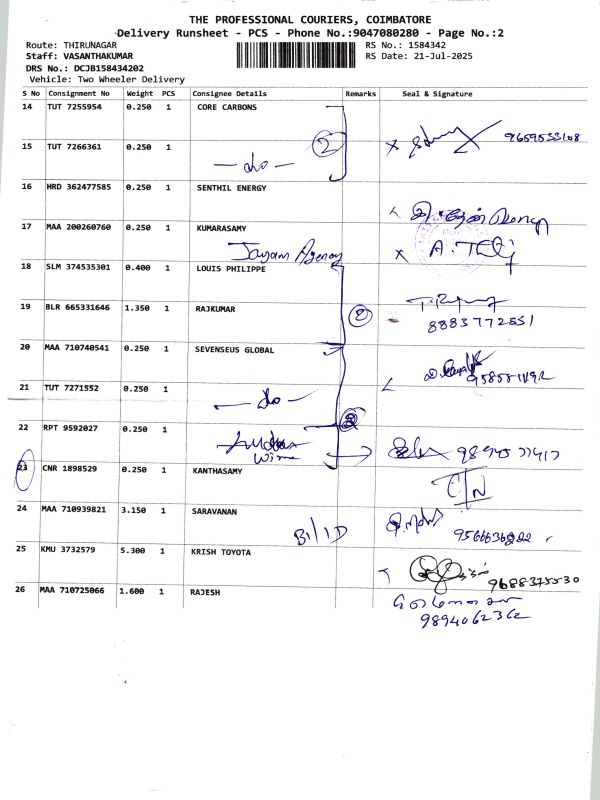 THE PROFESSIONAL COURIERS, COIMBATORE
Delivery Runsheet - PCS - Phone No.:9047080280 - Page No.:2
Route: THIRUNAGAR RS No.: 1584342
Staff: VASANTHAKUMAR RS Date: 21-Jul-2025
DRS No.: DCJB158434202
Vehicle: Two Wheeler Delivery
S No Consignment No Weight PCS Consignee Details Remarks Seal & Signature
14 TUT 7255954 0.250 1 CORE CARBONS
15 TUT 7266361 0.250 1 2 9659533108
— do —
16 HRD 362477585 0.250 1 SENTHIL ENERGY
17 MAA 200260760 0.250 1 KUMARASAMY
Jayam Agency
18 SLM 374535301 0.400 1 LOUIS PHILIPPE
19 BLR 665331646 1.350 1 RAJKUMAR 2
8883772551
20 MAA 710740541 0.250 1 SEVENSEUS GLOBAL
21 TUT 7271552 0.250 1
— do —
22 RPT 9592027 0.250 1
23 CNR 1898529 0.250 1 KANTHASAMY
24 MAA 710939821 3.150 1 SARAVANAN
B1/1D
25 KMU 3732579 5.300 1 KRISH TOYOTA
9688375530
26 MAA 710725066 1.600 1 RAJESH
9894062362